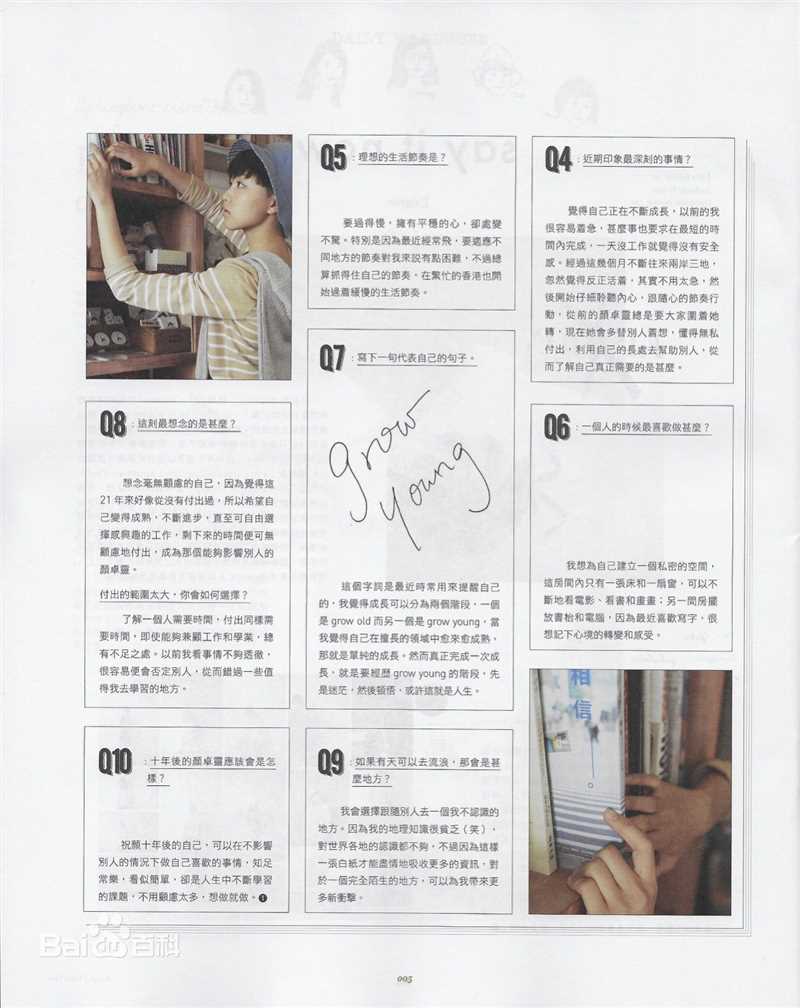 Q4：近期印象最深刻的事情？
覺得自己正在不斷成長，以前的我
很容易着急，甚麼事也要求在最短的時
間內完成，一天沒工作就覺得沒有安全
感。經過這幾個月不斷往來兩岸三地，
忽然覺得反正活着，其實不用太急，然
後開始仔細聆聽內心，跟隨心的節奏行
動，從前的顏卓靈總是要大家圍着她
轉，現在她會多替別人着想，懂得無私
付出，利用自己的長處去幫助別人，從
而了解自己真正需要的是甚麼。
Q5：理想的生活節奏是？
要過得慢，擁有平穩的心，卻處變
不驚。特別是因為最近經常飛，要適應不
同地方的節奏對我來説有點困難，不過總
算抓得住自己的節奏，在繁忙的香港也開
始過着緩慢的生活節奏。
Q6：一個人的時候最喜歡做甚麼？
我想為自己建立一個私密的空間，
這房間內只有一張床和一扇窗，可以不
斷地看電影、看書和畫畫；另一間房擺
放書枱和電腦，因為最近喜歡寫字，很
想記下心境的轉變和感受。
Q7：寫下一句代表自己的句子。
grow
young
這個字詞是最近時常用來提醒自己
的，我覺得成長可以分為兩個階段，一個
是 grow old 而另一個是 grow young，當
我覺得自己在擅長的領域中愈來愈成熟，
那就是單純的成長。然而真正完成一次成
長，就是要經歷 grow young 的階段，先
是迷茫，然後頓悟，或許這就是人生。
Q8：這刻最想念的是甚麼？
想念毫無顧慮的自己，因為覺得這
21 年來好像從沒有付出過，所以希望自
己變得成熟，不斷進步，直至可自由選
擇感興趣的工作，剩下來的時間便可無
顧慮地付出，成為那個能夠影響別人的
顏卓靈。
付出的範圍太大，你會如何選擇？
了解一個人需要時間，付出同樣需
要時間，即使能夠兼顧工作和學業，總
有不足之處。以前我看事情不夠透徹，
很容易便會否定別人，從而錯過一些值
得我去學習的地方。
Q9：如果有天可以去流浪，那會是甚
麼地方？
我會選擇跟隨別人去一個我不認識的
地方。因為我的地理知識很貧乏（笑），
對世界各地的認識都不夠，不過因為這樣
一張白紙才能盡情地吸收更多的資訊，對
於一個完全陌生的地方，可以為我帶來更
多新衝擊。
Q10：十年後的顏卓靈應該會是怎
樣？
祝願十年後的自己，可以在不影響
別人的情況下做自己喜歡的事情，知足
常樂，看似簡單，卻是人生中不斷學習
的課題，不用顧慮太多，想做就做。
相信。
Bai百科
005